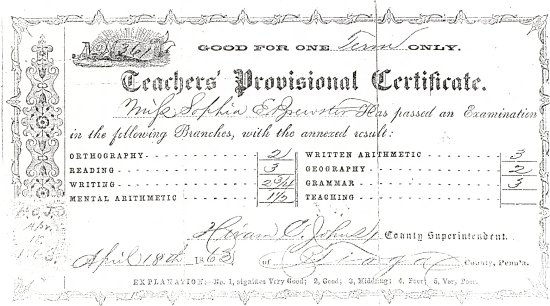 A No 361
GOOD FOR ONE Term ONLY.
Teachers' Provisional Certificate.
Miss Sophia E. Brewster Has passed an Examination
in the following Branches, with the annexed result:
ORTHOGRAPHY 2 WRITTEN ARITHMETIC 3
READING 3 GEOGRAPHY 2
WRITING GRAMMAR 3
MENTAL ARITHMETIC 1½ TEACHING
Hiram C. Johns County Superintendent.
April 18th 1863 of Tioga County, Penn'a.
EXPLANATION: No. 1, signifies Very Good; 2, Good; 3, Middling; 4, Poor; 5, Very Poor.